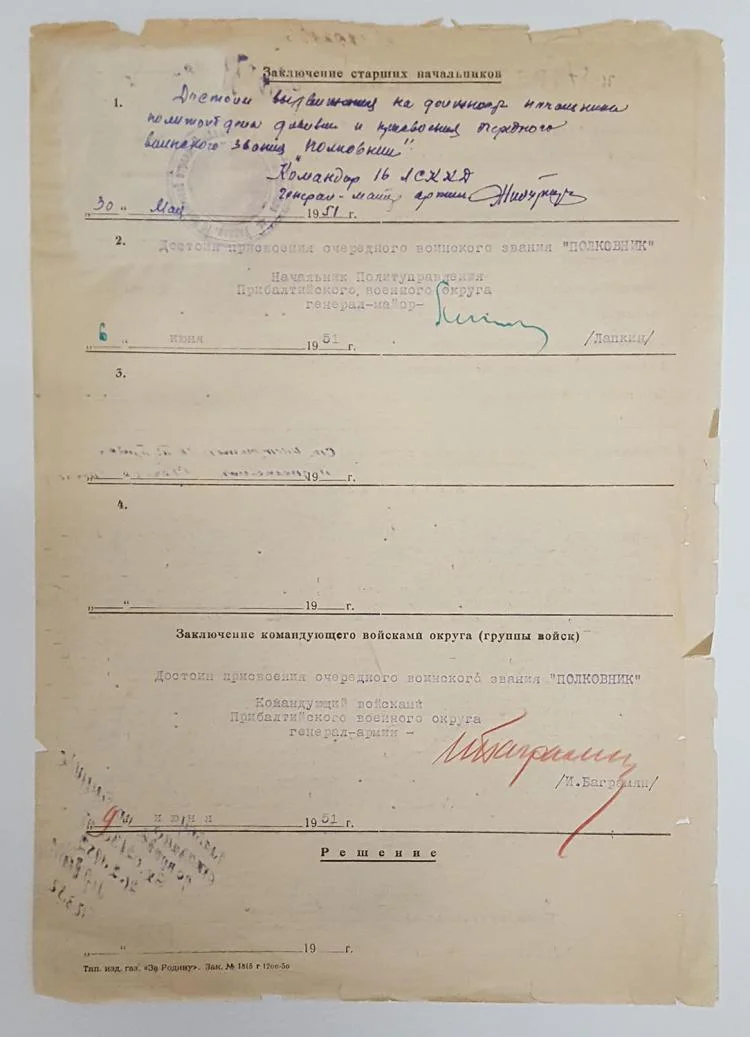 Заключение старших начальников
1. Достоин выдвижения на должность начальника
политотдела дивизии и присвоения очередного
воинского звания "Полковник".
Командир 16 ЛСККД
генерал-майор артил
"30" Мая 1951 г.
2. Достоин присвоения очередного воинского звания "ПОЛКОВНИК"
Начальник Политуправления
Прибалтийского военного округа
генерал-майор-
/Лапкин/
"6" июня 1951 г.
3.
19 г.
4.
" " 19 г.
Заключение командующего войсками округа (группы войск)
Достоин присвоения очередного воинского звания "ПОЛКОВНИК"
Командующий войсками
Прибалтийского военного округа
генерал-армии -
И Баграмян
/И.Баграмян/
"9" июня 1951 г.
Решение
" " 19 г.
Тип. изд. газ. «За Родину». Зак. № 1815 г 12ое-50